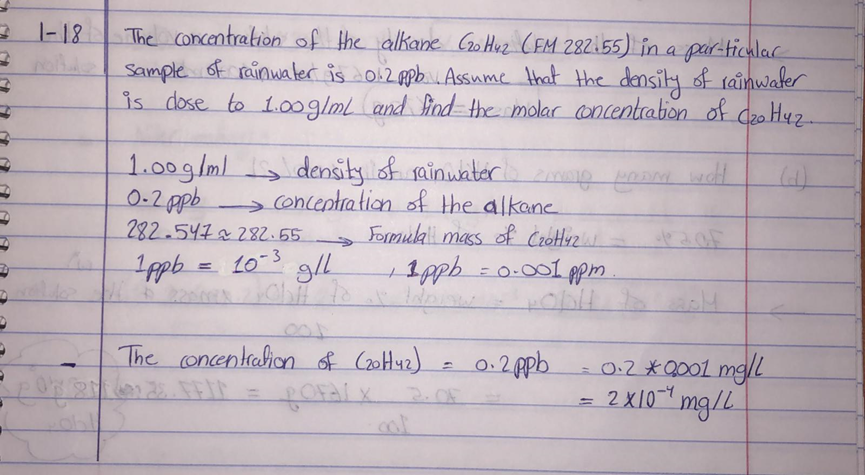 1-18 The concentration of the alkane C20H42 (FM 282.55) in a par-ticular
sample of rainwater is 0.2 ppb. Assume that the density of rainwater
is close to 1.00g/ml and find the molar concentration of C20H42.
1.00g/ml → density of rainwater
0.2ppb → concentration of the alkane
282.547 ≈ 282.55 → Formula mass of C20H42
1ppb = 10⁻³ g/l , 1ppb = 0.001 ppm.
- The concentration of (C20H42) = 0.2ppb = 0.2 * 0.001 mg/L
= 2×10⁻⁴ mg/L